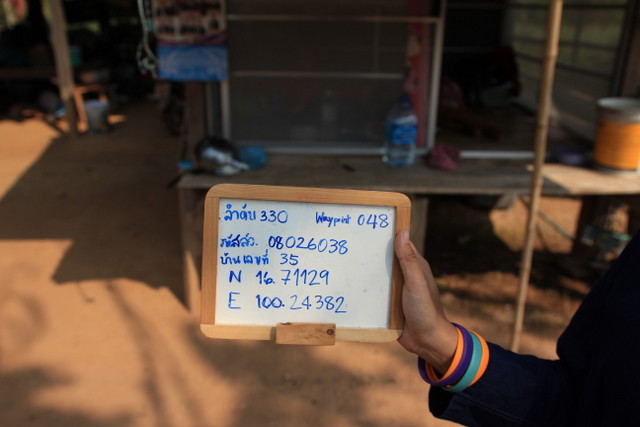 ลำดับ 330 Waypoint 048
รหัสสว. 08026038
บ้านเลขที่ 35
N 16.71129
E 100.24382